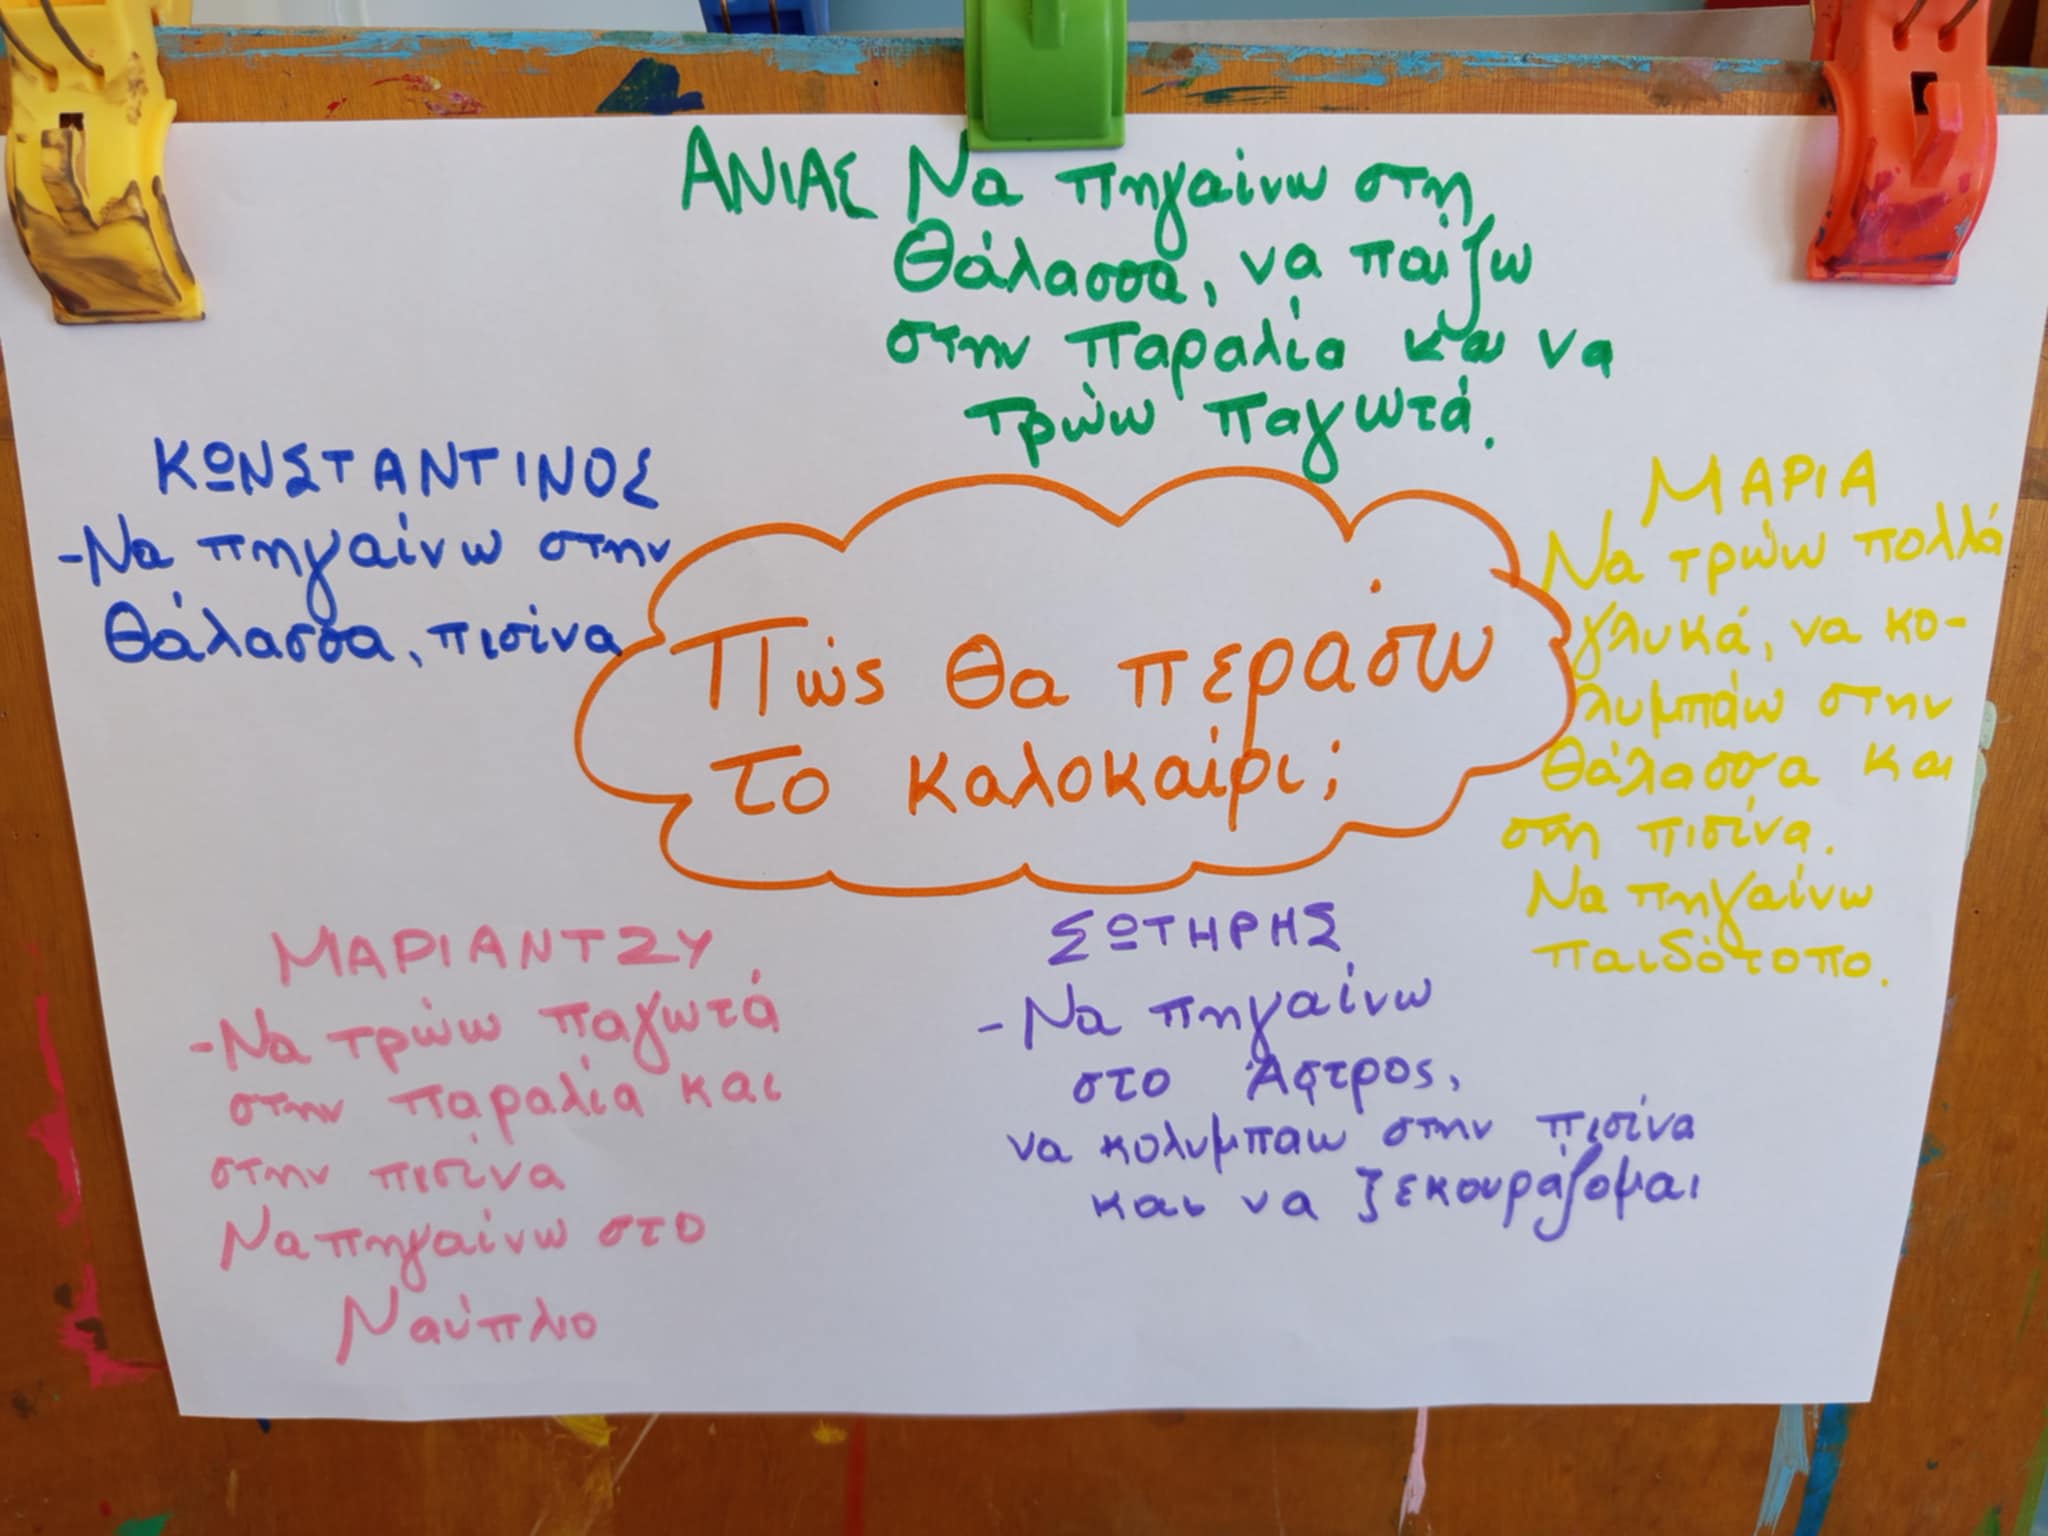 ΑΝΙΑΣ Να πηγαίνω στη
θάλασσα, να παίζω
στην παραλία και να
τρώω παγωτά.
ΚΩΝΣΤΑΝΤΙΝΟΣ
-Να πηγαίνω στην
θάλασσα, πισίνα
Πώς θα περάσω
το καλοκαίρι;
ΜΑΡΙΑ
Να τρώω πολλά
γλυκά, να κο-
λυμπάω στην
θάλασσα και
στη πισίνα.
Να πηγαίνω
παιδότοπο.
ΜΑΡΙΑΝΤΖΥ
-Να τρώω παγωτά
στην παραλία και
στην πισίνα
Να πηγαίνω στο
Ναύπλιο
ΣΩΤΗΡΗΣ
-Να πηγαίνω
στο Άστρος,
να κολυμπαω στην πισίνα
και να ξεκουράζομαι